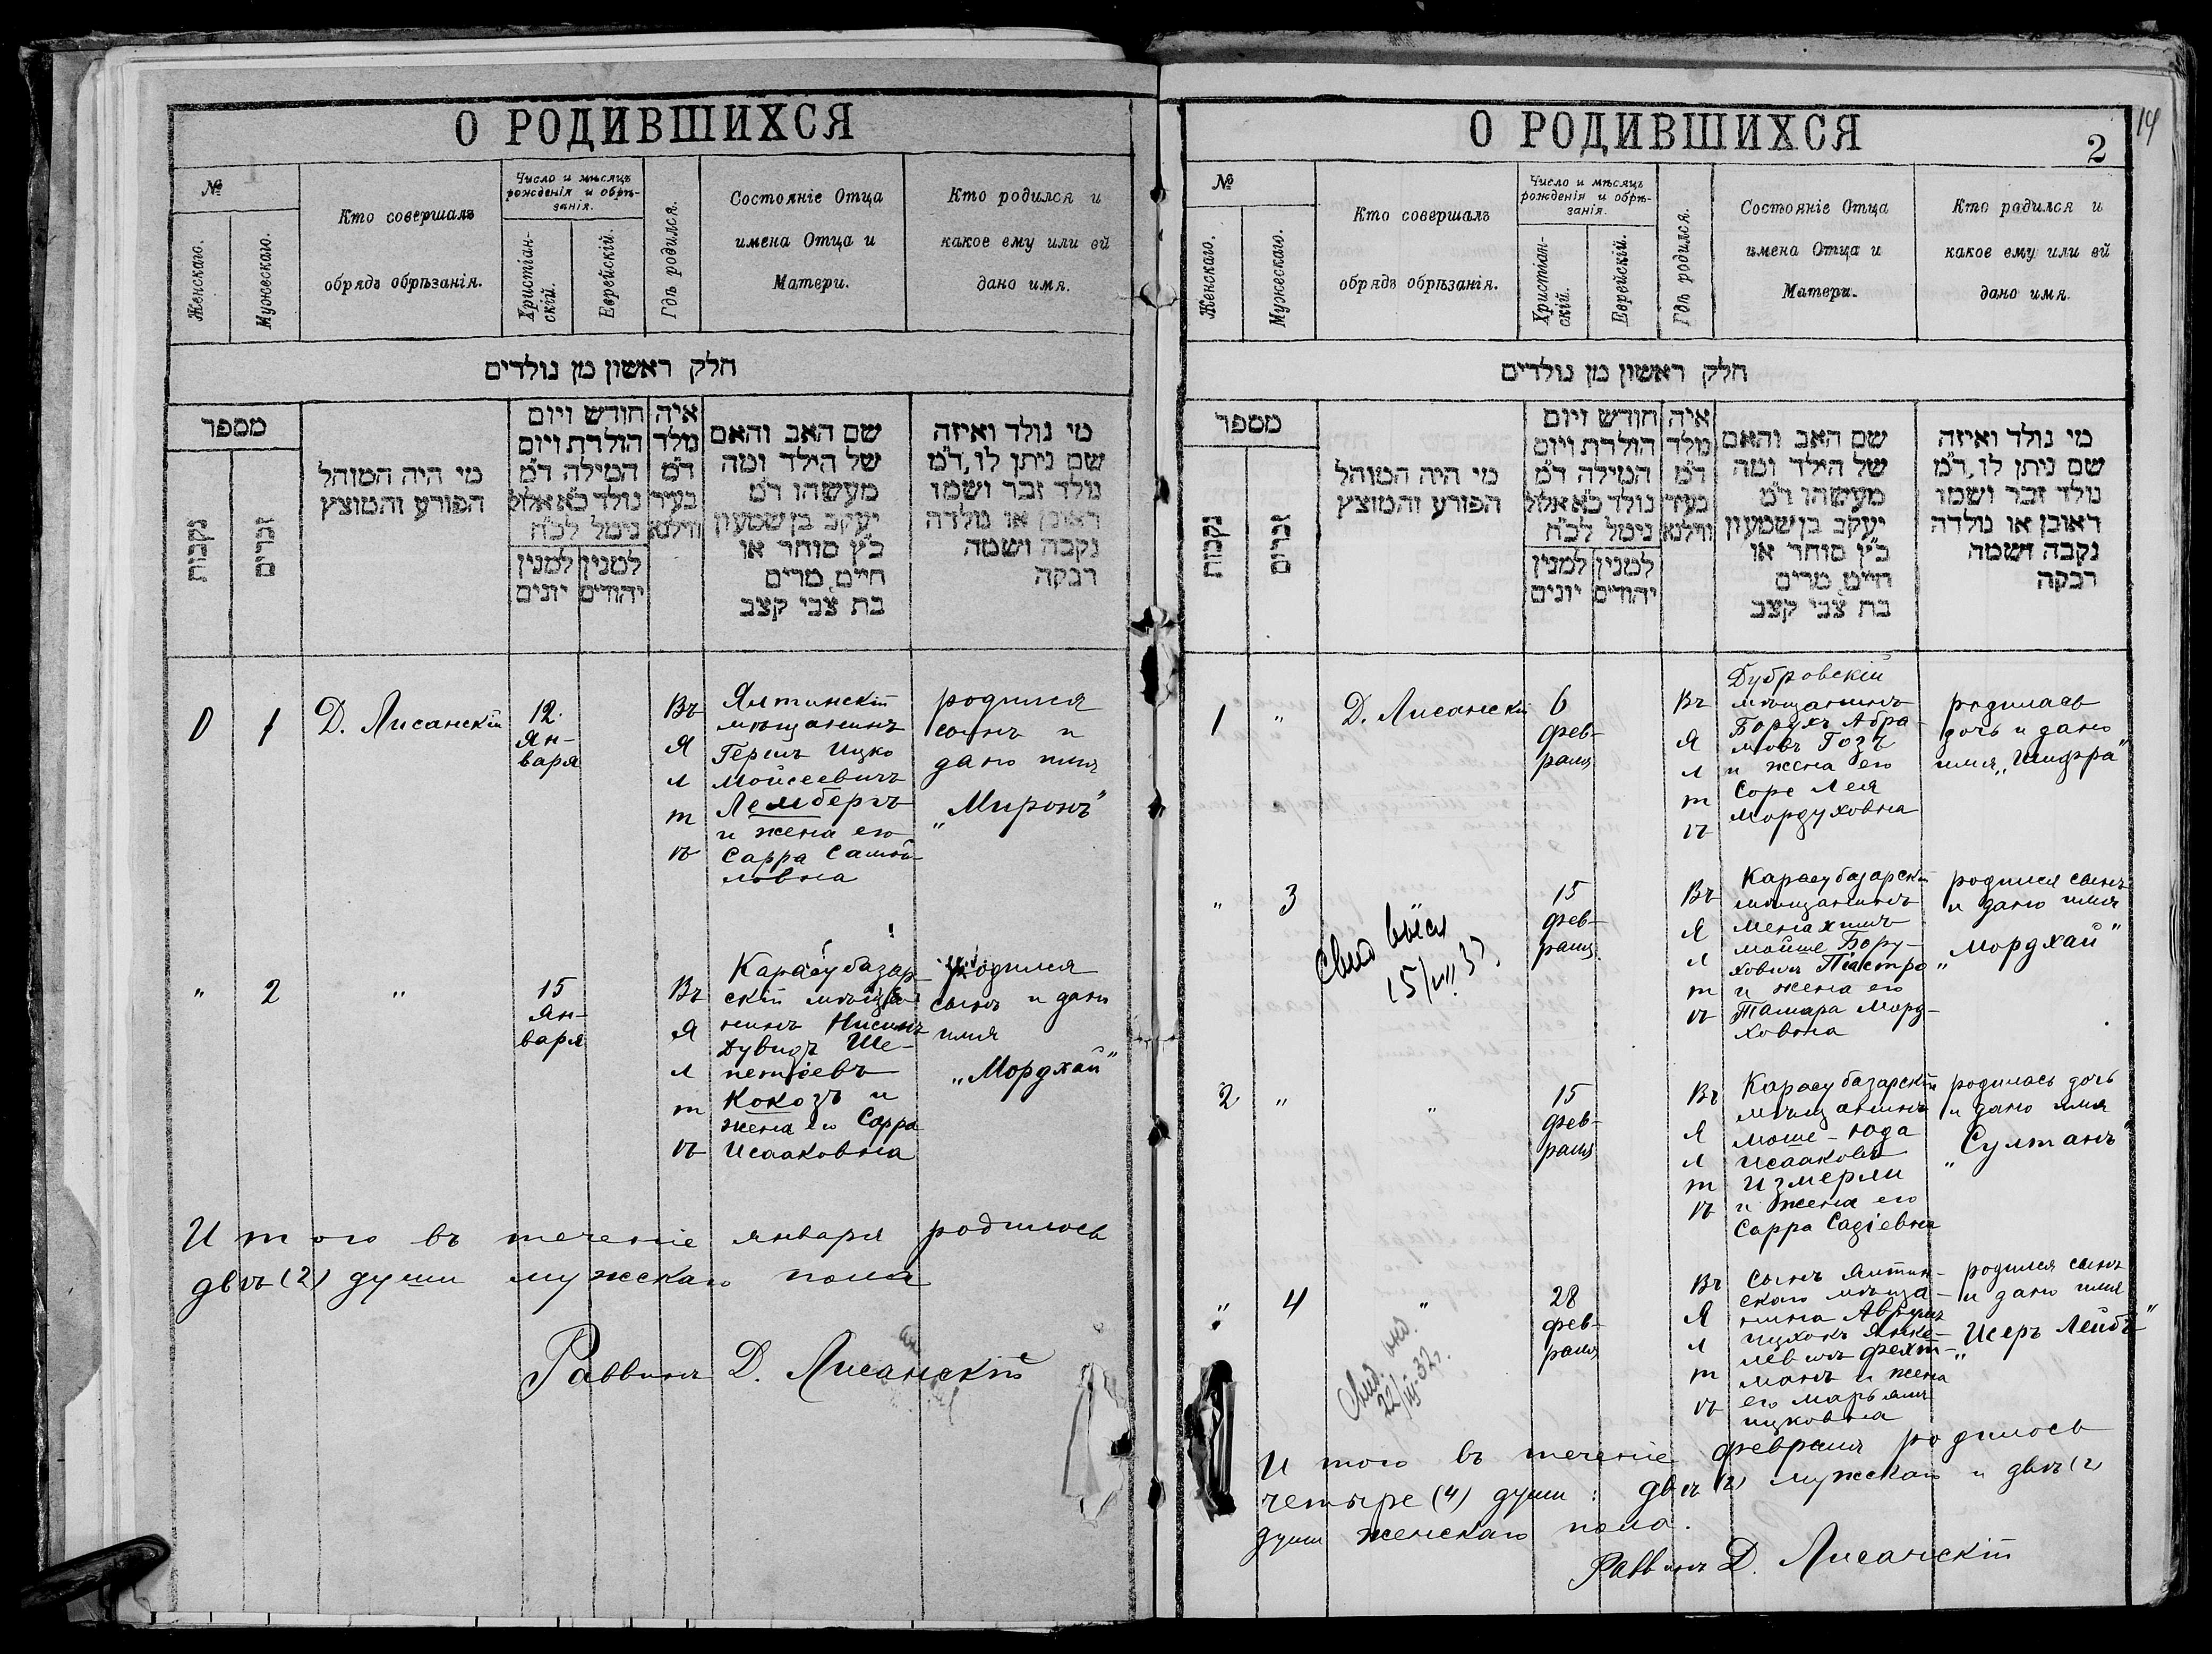 О РОДИВШИХСЯ
№
Женскаго.
Мужескаго.
Кто совершалъ
обрядъ обрѣзанія.
Число и мѣсяцъ
рожденія и обрѣ-
занія.
Христіан-
скій.
Еврейскій.
Гдѣ родился.
Состояніе Отца
имена Отца и
Матери.
Кто родился и
какое ему или ей
дано имя.
חלק ראשון מן נולדים
מספר
נקבות
זכרים
מי היה המוהל
הפורע והמוצץ
חודש ויום
הולדת ויום
המילה ד״מ
נולד כ״א אלול
נימל לכ״ח
למנין
יונים
למנין
יהודים
איה
נולד
ד״מ
בעיר
ווילנא
שם האב והאם
של הילד ומה
מעשהו ד״מ
יעקב בן שמעון
כ״ץ סוחר או
חי״ם מרים
בת צבי קצב
מי נולד ואיזה
שם ניתן לו, ד״מ
נולד זכר ושמו
ראובן או נולדה
נקבה ושמה
רבקה
0 1 Д. Лисанскій
12
Ян-
варя
Въ
Я
л
т
ѣ
Ялтинскій
мѣщанинъ
Гершъ Ицко
Мойсеевичъ
Лембергъ
и жена его
Сарра Самой-
ловна
родился
сынъ и
дано имя
„Миронъ“
„ 2 „
15
Ян-
варя
Въ
Я
л
т
ѣ
Карасубазар-
скій мѣща-
нинъ Нисимъ
Дувидъ Ше-
Кокозъ и
жена его Сарра
Исааковна
родился
сынъ и дано
имя
„Мордхай“
Итого въ теченіе января родилось
двѣ (2) души мужскаго пола
Раввинъ Д. Лисанскій
О РОДИВШИХСЯ
2
14
№
Женскаго.
Мужескаго.
Кто совершалъ
обрядъ обрѣзанія.
Число и мѣсяцъ
рожденія и обрѣ-
занія.
Христіан-
скій.
Еврейскій.
Гдѣ родился.
Состояніе Отца
имена Отца и
Матери.
Кто родился и
какое ему или ей
дано имя.
חלק ראשון מן נולדים
מספר
נקבות
זכרים
מי היה המוהל
הפורע והמוצץ
חודש ויום
הולדת ויום
המילה ד״מ
נולד כ״א אלול
נימל לכ״ח
למנין
יונים
למנין
יהודים
איה
נולד
ד״מ
בעיר
ווילנא
שם האב והאם
של הילד ומה
מעשהו ד״מ
יעקב בן שמעון
כ״ץ סוחר או
חי״ם מרים
בת צבי קצב
מי נולד ואיזה
שם ניתן לו, ד״מ
נולד זכר ושמו
ראובן או נולדה
נקבה ושמה
רבקה
1 „ Д. Лисанскій
6
фев-
раля
Въ
Я
л
т
ѣ
Дубровскій
мѣщанинъ
Борухъ Абра-
мовъ Гозъ
и жена его
Соре Лея
Мордуховна
родилась
дочь и дано
имя „Шифра“
„ 3
15
фев-
раля
Въ
Я
л
т
ѣ
Карасубазарскій
мѣщанинъ
Менахимъ
Мойше Бору-
ховичъ Піастро
и жена его
Тамара Морд-
ховна
родился сынъ
и дано имя
„Мордхай“
2 „ „
15
фев-
раля
Въ
Я
л
т
ѣ
Карасубазарскій
мѣщанинъ
Моше-Юда
Исааковъ
Измерли
и жена его
Сарра Садіевна
родилась дочь
и дано имя
„Султанъ“
„ 4 „
22/III-32г.
28
фев-
раля
Въ
Я
л
т
ѣ
Сынъ Ялтин-
скаго мѣща-
нина Аврумъ
Ицхокъ Янке-
левичъ Фехт-
манъ и жена
его Марьямъ
Ицковна
родился сынъ
и дано имя
„Исеръ Лейбъ“
Итого въ теченіе февраля родилось
четыре (4) души: двѣ (2) мужскаго и двѣ (2)
души женскаго пола.
Раввинъ Д. Лисанскій